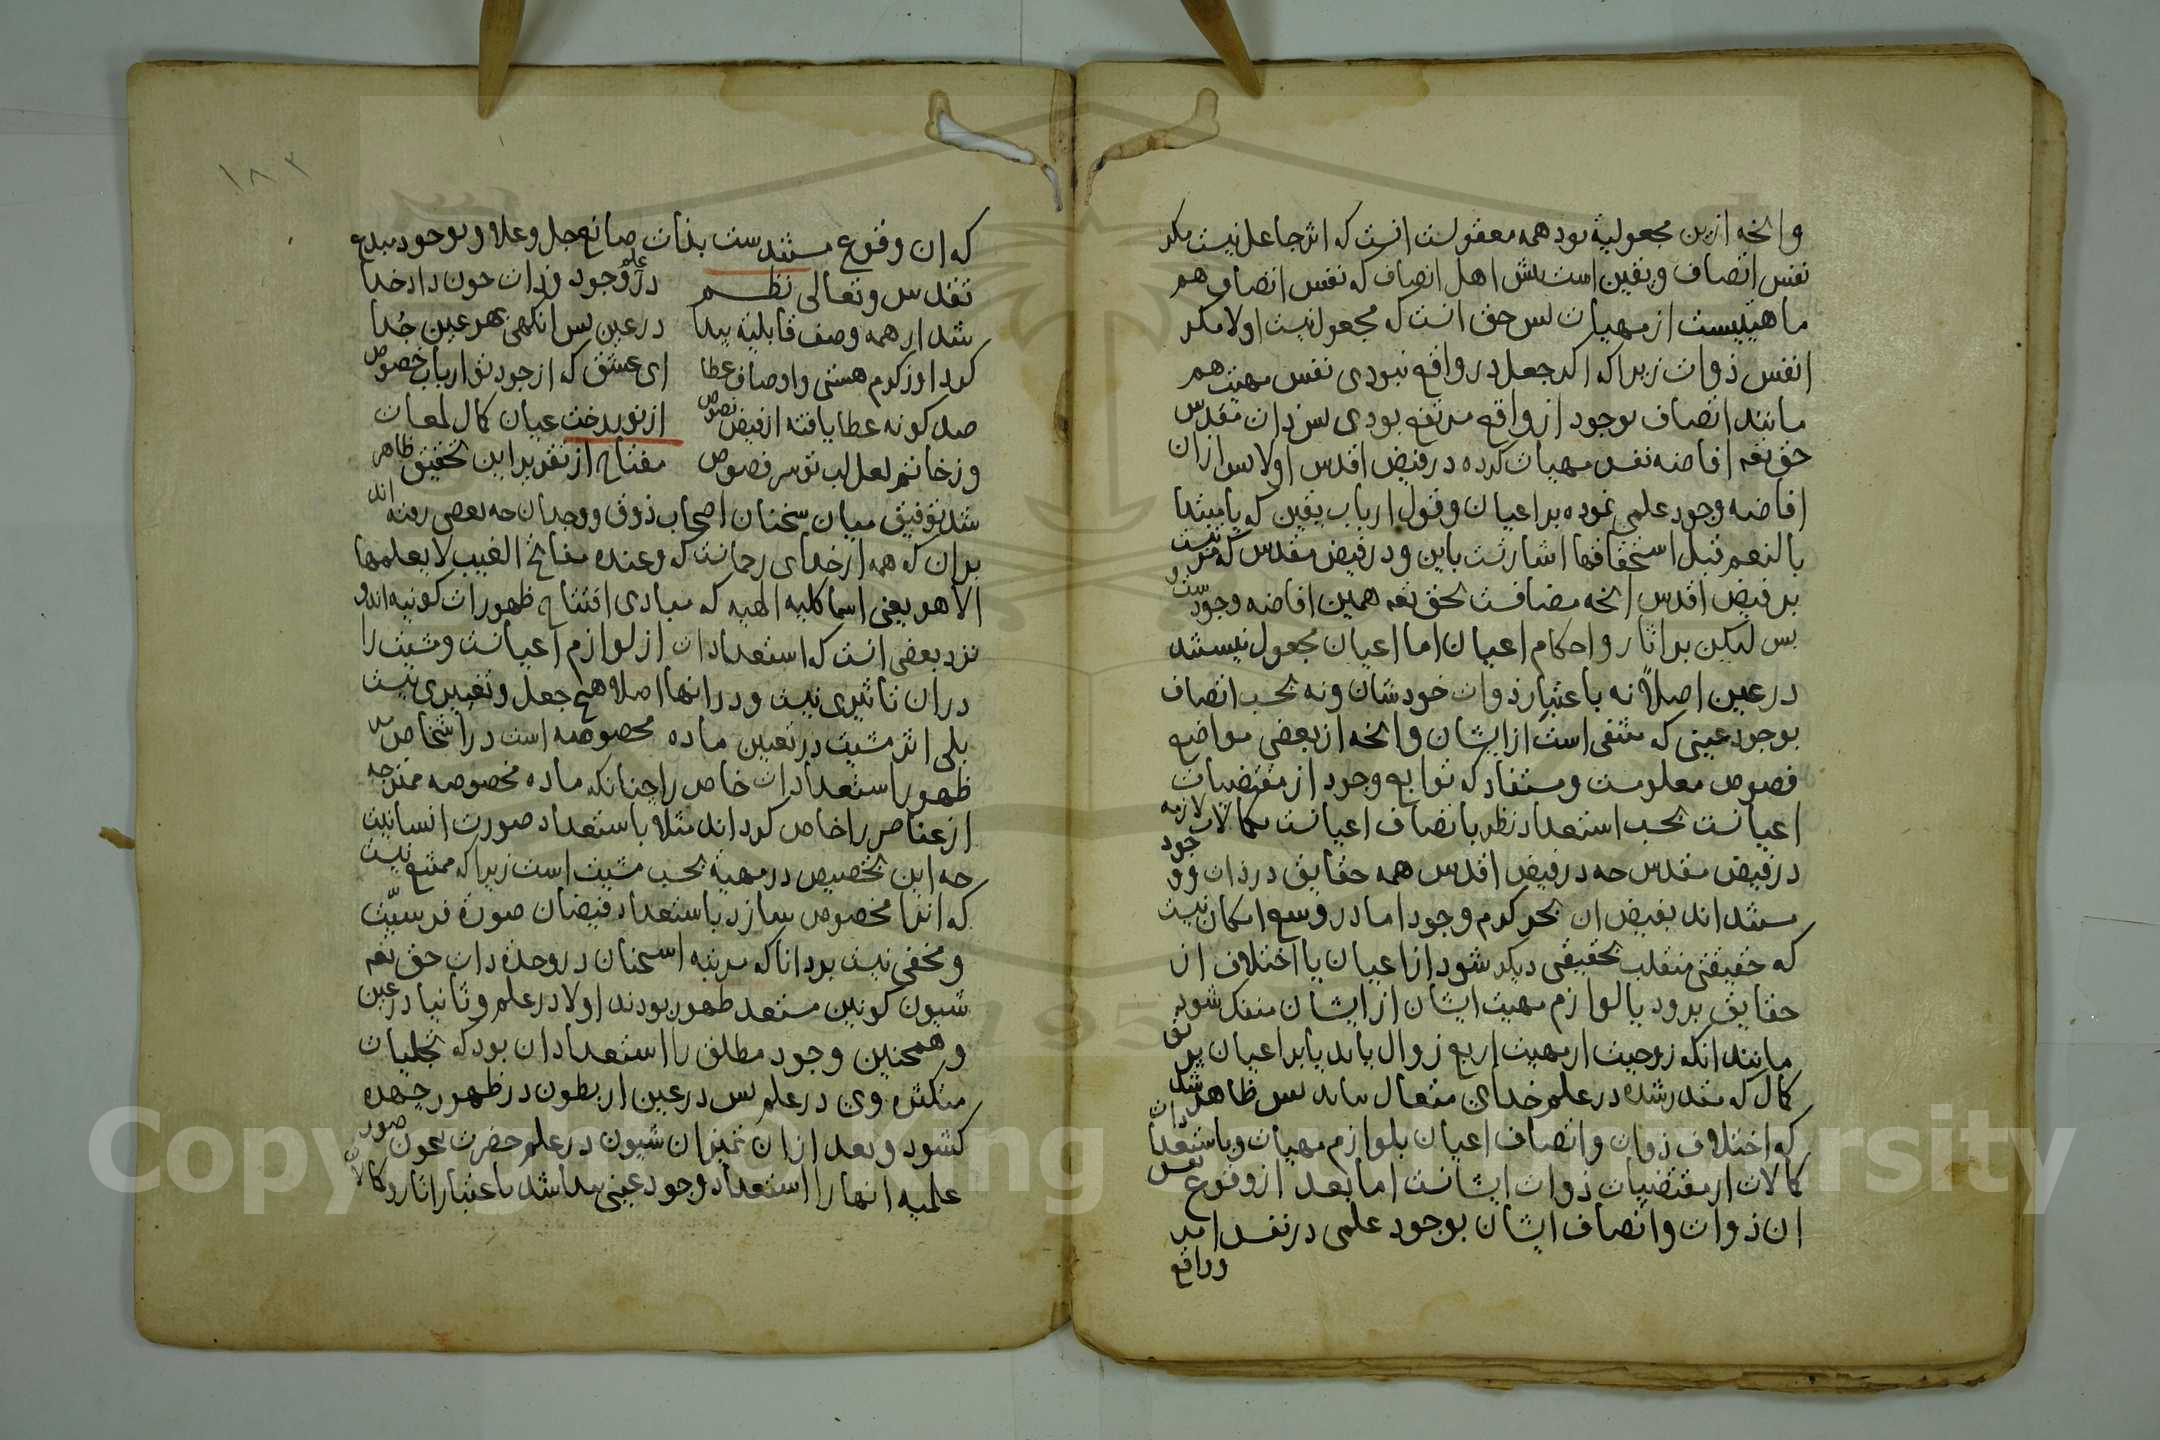 وانچه ازین مجعولیة بود همه معقولست انست که اثر جاعل نیست مکر
نفس اتصاف ویقین است پیش اهل انصاف که نفس اتصاف هم
ماهیتیست از مهیات پس حق انست که مجعول نیست اولا مکر
انفس ذوات زیرا که اکر جعل در واقع نبودی نفس مهیت هم
مانند اتصاف بوجود از واقع مرتفع بودی پس ذات مقدس
حق تعه افاضه نفس مهیات کرده در فیض اقدس اولا پس ازان
افاضه وجود علمی نموده بر اعیان وقول ارباب یقین که یا مبتدا
بالنعم قبل استحقاقها اشارتست باین ودر فیض مقدس که مرتبست
بر فیض اقدس انچه مضافست بحق تعه همین افاضه وجودست و
بس لیکن بر اثار واحکام اعیان اما اعیان مجعول نیستند
در عین اصلاً نه باعتبار ذوات خودشان ونه بحسب اتصاف
بوجود عینی که منتفی است از ایشان وانچه از بعضی مواضع
فصوص معلومست ومستفاد که توابع وجود از مقتضیات
اعیانست بحسب استعداد نظر باتصاف اعیانست بکمالات لازمه
در فیض مقدس چه در فیض اقدس همه حقایق در ذات ووجود
مستند اند بفیض ان بحر کرم وجود اما در وسع امکان نیست
که حقیقتی منقلب بحقیقتی دیکر شود از اعیان یا اختلاف از
حقایق برود یا لوازم مهیت ایشان از ایشان منفک شود
مانند انکه زوجیت از مهیت اربع زوال یابد یا بر اعیان
کمال که مقدر شده در علم خدای متعال بیاید پس ظاهر شد
که اختلاف ذوات واتصاف اعیان بلوازم مهیات وباستعدادات
کمالات از مقتضیات ذوات ایشانست اما بعد از وقوع نفس
ان ذوات واتصاف ایشان بوجود علمی در نفس امر
وواقع
۱۸۲
که ان وقوع مستندست بذات صانع جل وعلا وبوجود مبدع
تقدس وتعالی نظم در علم وجود وذات چون داد خدا
شد از همه وصف قابلیة پیدا در عین پس انکهی بهر عین جُدا
کرد از کرم هستی واوصاف عطا ای عشق که از جود تو ارباب خصوص
صد کونه عطا یافته از فیض نصوص از نور رخت عیان کمال لمعات
وز خاتم لعل لب تو سر فصوص مفتاح از تقریر این تحقیق ظاهر
شد توفیق میان سخنان اصحاب ذوق ووجدان چه بعضی رفته اند
بران که همه از خدای رحمانست که وعنده مفاتح الغیب لا یعلمها
الا هو یعنی اسما کلیه الهیه که مبادی افتتاح ظهورات کونیه اند و
نزد بعضی انست که استعدادات از لوازم اعیانست ومشیت را
دران تاثیری نیست ودر انها اصلا هیچ جعل وتغییری نیست
بلی اثر مشیت در تعیین ماده مخصوصه است در اشخاص
ظهور استعدادات خاص را چنانکه ماده مخصوصه ممتزجه
از عناصر را خاص کرداند مثلا باستعداد صورت انسانیت
چه این تخصیص در مهیة بحسب مشیت است زیرا که ممتنع نیست
که انرا مخصوص سازد باستعداد فیضان صورة فرسیّت
ومخفی نیست بر دانا که مرتبه استجنان در وحدة ذات حق تعه
شیون کونین مستعد ظهور بودند اولا در علم وثانیا در عین
وهمچنین وجود مطلق را استعداد ان بود که تجلیات
متکثره وی در علم پس در عین از بطون در ظهور چهره
کشود وبعد ازان تمیز ان شیون در علم حضرت بیچون صور
علمیه انها را استعداد وجود عینی پیدا شد باعتبار اثار وکمالات